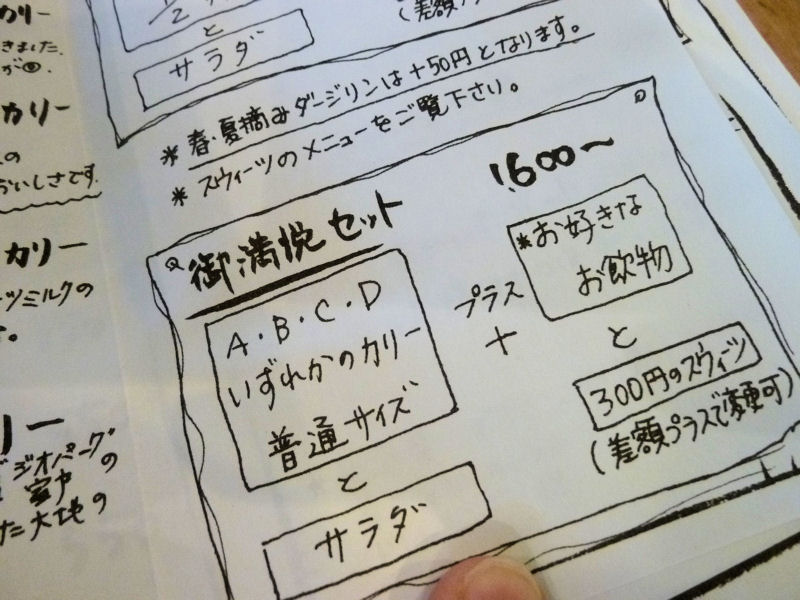 カリー
きました.
が
カリー
の
おいしさです.
カリー
ツミルクの
リー
ジオパーグ
室戸の
た大地の
1/2
と
サラダ
(差額プラ
*春・夏摘みダージリンは+50円となります。
*スウィーツのメニューをご覧下さい。
御満悦セット
1,600〜
A・B・C・D
いずれかのカリー
普通サイズ
と
サラダ
プラス
+
*お好きな
お飲物
と
300円のスウィーツ
(差額プラスで変更可)